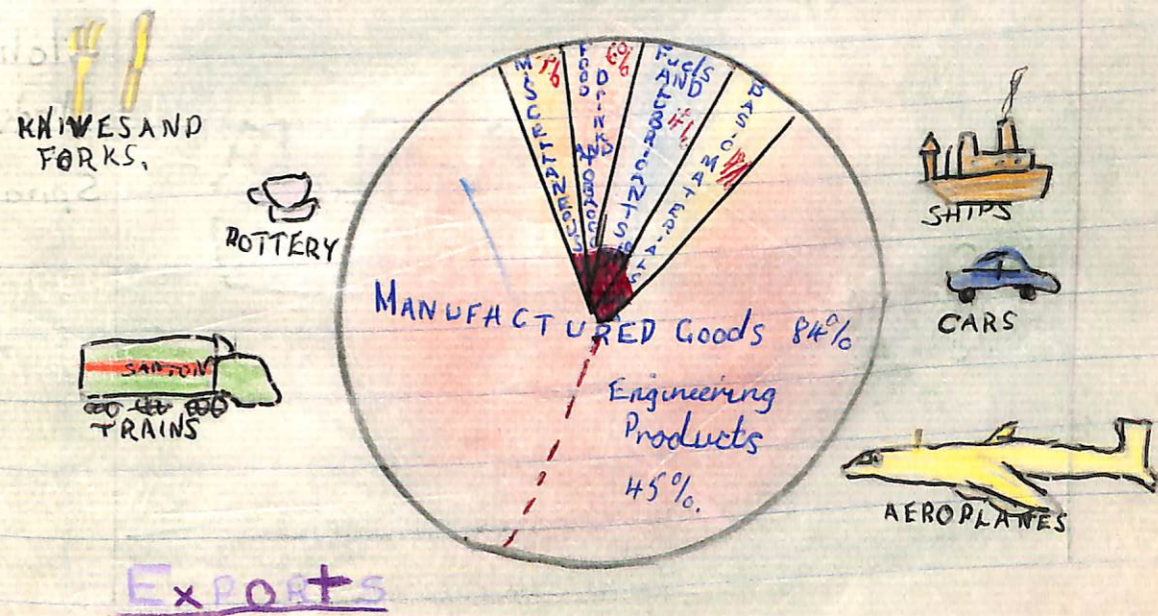 KNIVES AND
FORKS.
POTTERY
SANTON
TRAINS
MISCELLANEOUS
FOOD DRINK AND TOBACCO 6%
Fuels AND LUBRICANTS 4%
BASIC MATERIALS
MANUFACTURED Goods 84%
Engineering
Products
45%.
SHIPS
CARS
AEROPLANES
ExPORtS